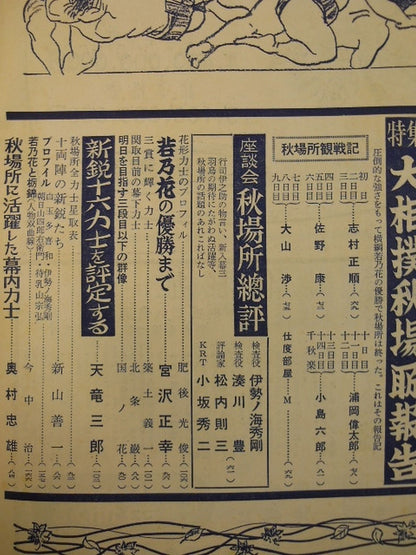 特集
大相撲秋場所報告
圧倒的な強さをもって横綱若乃花の優勝で秋場所は終った。これはその報告記
秋場所観戦記
初日
二日目
三日目
志村正順
四日目
五日目
六日目
佐野康
七日目
八日目
九日目
大山渉
十日目
十一日目
十二日目
浦岡偉太郎
十三日目
十四日目
千秋楽
小島六郎
仕度部屋
M
座談会
秋場所總評
行司伊之助の物言い、新入幕三
羽烏の期待、
秋場所の話題のあれこればなし
検査役
伊勢ノ海秀剛
検査役
湊川豊
評論家
松内則三
KRT
小坂秀二
花形力士のプロフィル
肥後光俊
若乃花の優勝まで
宮沢正幸
三賞に輝く力士
築土義一
関取目前の幕下力士
北条巌
明日を目指す三段目以下の群像
国ノ花
新鋭十六力士を評定する
天竜三郎
秋場所全力士星取表
十両陣の新鋭たち
新山善一
プロフィル
若乃花と栃錦
今中治
秋場所に活躍した幕内力士
奥村忠雄